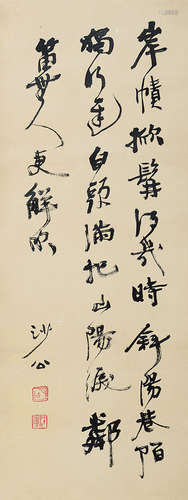 岸幘掀髯得幾時斜陽巷陌
獨行遲白頭滿把山陽淚鄰
笛無人更解吹
沙公